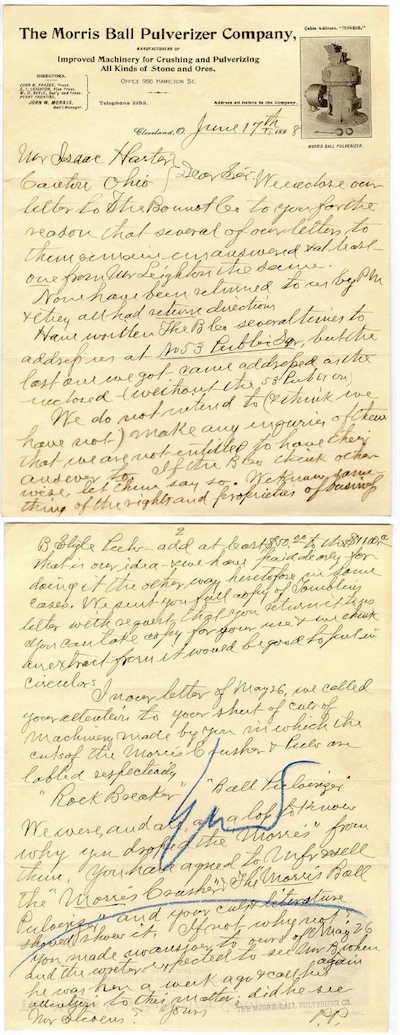 Cable Address, "MORRIS."
The Morris Ball Pulverizer Company,
MANUFACTURERS OF
Improved Machinery for Crushing and Pulverizing
All Kinds of Stone and Ores.
DIRECTORS.
OFFICE 986 HAMILTON ST.
JOHN M. MORRIS,
Gen'l Manager.
Telephone 2259.
Address all letters to the Company.
Cleveland, O. June 17th 1898
MORRIS BALL PULVERIZER.
Mr Isaac Harter
Canton Ohio } Dear Sir. We enclose our
letter to The Bonnot Co to you for the
reason that several of our letters to
them remain unanswered & at least
one from Mr Leighton the same.
None have been returned to us by P M
& they all had return directions
Have written The B Co several times to
address us at No 53 Public Sqr, but the
last one we got came addressed as the
enclosed (without the 53 Public on)
We do not intend to (& think we
have not) make any inquiries of them
that we are not entitled to have they
answer to. If the B Co think other-
wise, let them say so. We know some-
thing of the rights and proprieties of business
2
B Style Pulv- add at least $50.00 to the
that is our idea - & we have paid dearly for
doing it the other way heretofore in some
cases. We sent you full copy of
letter with request that you return it to us
& you can take copy for your use & we think
an extract from it would be good to put in
circulars
In our letter of May 26, we called
your attention to your sheet of cuts of
Machinery made by you in which the
cuts of the Morris Crusher & Pulv are
labled respectively
"Rock Breaker" "Ball Pulverizer"
We were, and are, at a loss to know
why you droped the "Morris" from
them, You had agreed to Mfr & sell
the "Morris Crusher" & The "Morris Ball
Pulverizer" and your cuts & literature
should show it. If not why not?
You made no answer to ours of May 26
and the writer expected to see Mr B when
he was here a week ago & call his again
attention to this matter. did he see
Mr Stevens? Yours
THE MORRIS BALL PULVERIZING CO.